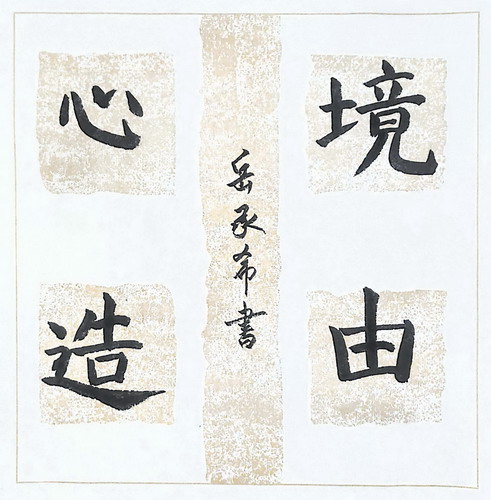 境由
心造
岳承希書